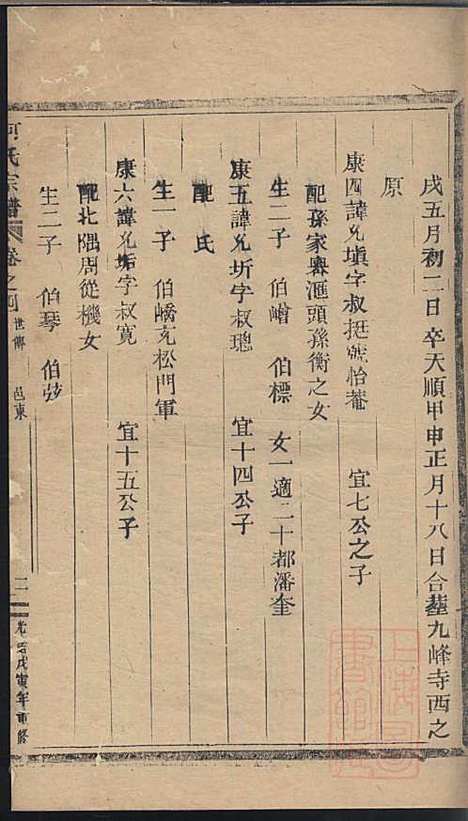 戌五月初二日卒天順甲申正月十八日合塟九峰寺西之
原
康四諱允塡字叔挺號怡菴　宜七公之子
配孫家嶴滙頭孫衡之女
生二子　伯嶒　伯標　女一適二十都潘奎
康五諱允圻字叔璁　宜十四公子
配　氏
生一子　伯嶠充松門軍
康六諱允垢字叔寬　宜十五公子
配北隅周從機女
生二子　伯琴　伯兹
氏宗譜　卷之　世傳　邑東　二　光緒戊寅年重修